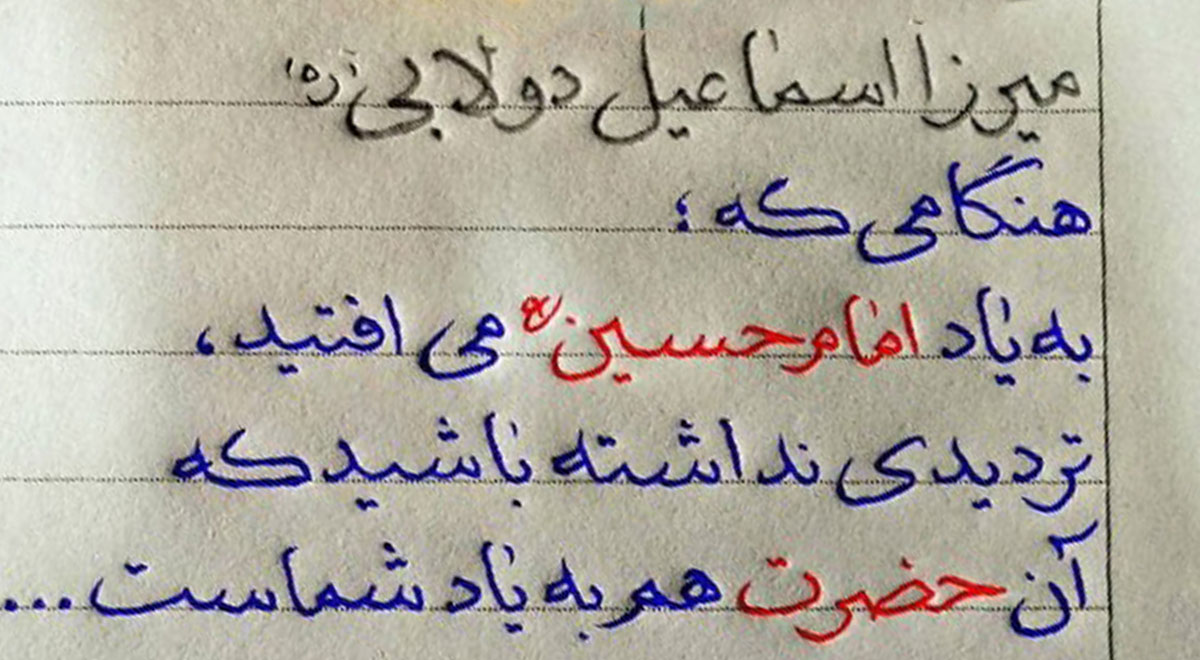 میرزا اسماعیل دولابی (ره)
هنگامی که :
به یاد امام حسین ع می افتید،
تردیدی نداشته باشید که
آن حضرت هم به یاد شماست...